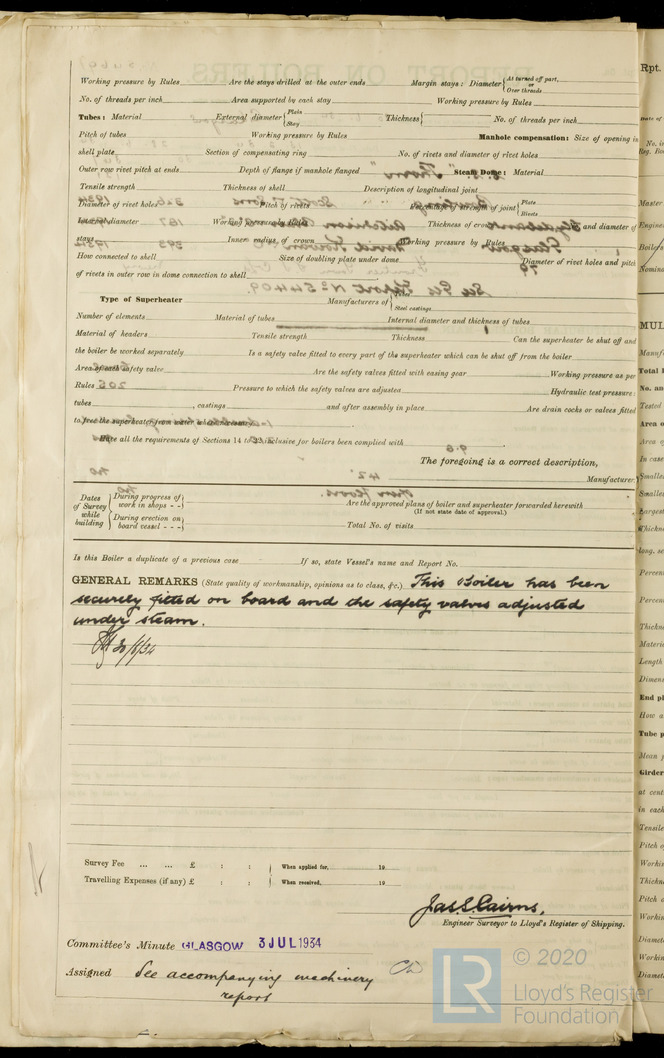 Working pressure by Rules Are the stays drilled at the outer ends Margin stays: Diameter { At turned off part, or Over threads
No. of threads per inch Area supported by each stay Working pressure by Rules
Tubes: Material External diameter { Plain Stay Thickness { No. of threads per inch
Pitch of tubes Working pressure by Rules Manhole compensation: Size of opening in
shell plate Section of compensating ring No. of rivets and diameter of rivet holes
Outer row rivet pitch at ends Depth of flange if manhole flanged Steam Dome: Material
Tensile strength Thickness of shell Description of longitudinal joint
Diameter of rivet holes Pitch of rivets Percentage strength of joint { Plate Rivets
diameter Working pressure by Rules Thickness of crown and diameter of
stays Inner radius of crown Working pressure by Rules
How connected to shell Size of doubling plate under dome Diameter of rivet holes and pitch
of rivets in outer row in dome connection to shell
Type of Superheater Manufacturers of { Steel castings
Number of elements Material of tubes Internal diameter and thickness of tubes
Material of headers Tensile strength Thickness Can the superheater be shut off and
the boiler be worked separately Is a safety valve fitted to every part of the superheater which can be shut off from the boiler
Area of each safety valve Are the safety valves fitted with easing gear Working pressure as per
Rules Pressure to which the safety valves are adjusted Hydraulic test pressure:
tubes , castings and after assembly in place Are drain cocks or valves fitted
to free the superheater from water where necessary
Have all the requirements of Sections 14 to inclusive for boilers been complied with
The foregoing is a correct description,
Manufacturer.
Dates of Survey while building { During progress of work in shops - - { During erection on board vessel - - -
Are the approved plans of boiler and superheater forwarded herewith
(If not state date of approval.)
Total No. of visits
Is this Boiler a duplicate of a previous case If so, state Vessel's name and Report No.
GENERAL REMARKS (State quality of workmanship, opinions as to class, &c.) This Boiler has been
securely fitted on board and the safety valves adjusted
under steam.
Survey Fee ... ... £ : : } When applied for, 19
Travelling Expenses (if any) £ : : } When received, 19
Jas. S. Cairns.
Engineer Surveyor to Lloyd's Register of Shipping.
Committee's Minute GLASGOW 3 JUL 1934
Assigned See accompanying machinery
report
LR © 2020
Lloyd's Register
Foundation